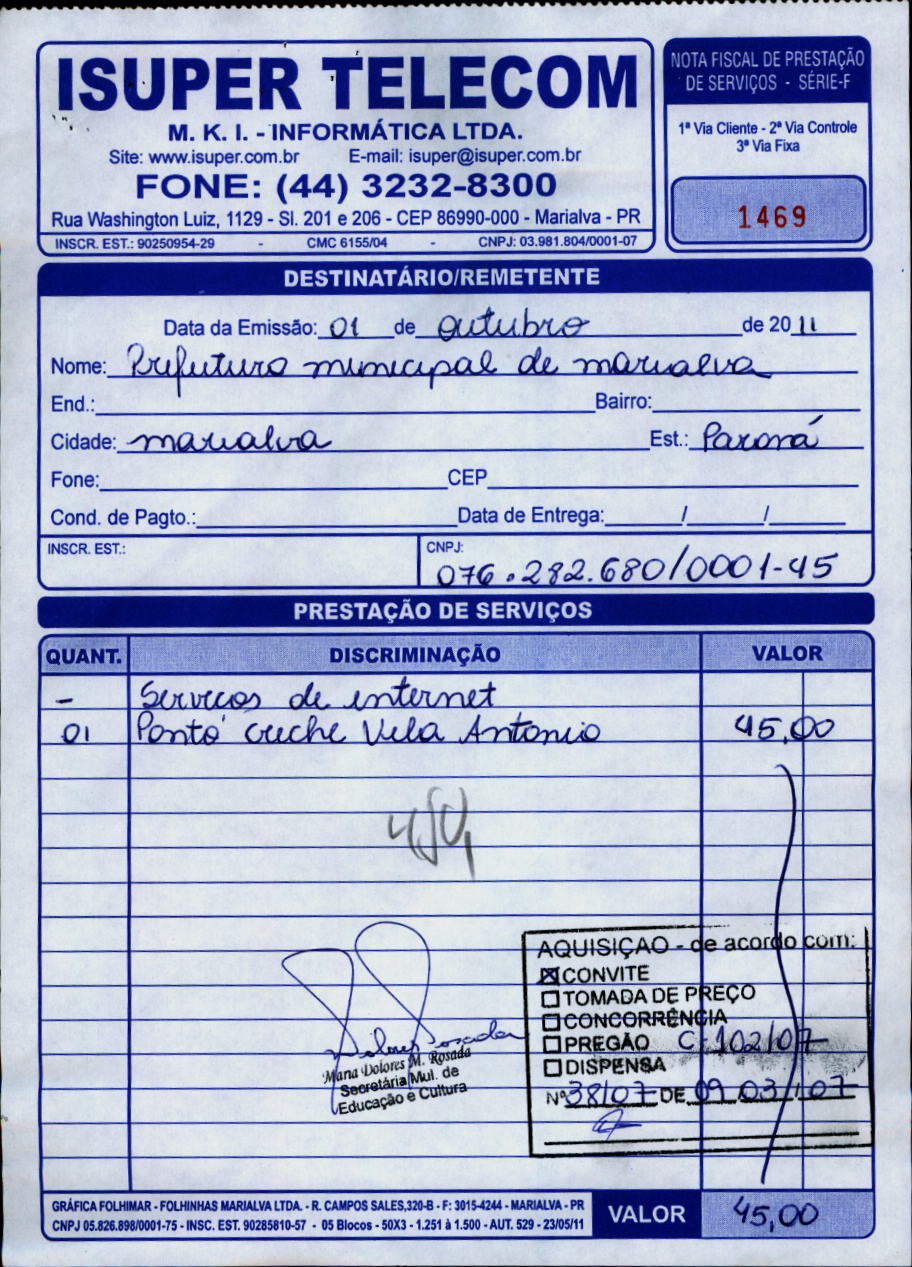 ISUPER TELECOM
M. K. I. - INFORMÁTICA LTDA.
Site: www.isuper.com.br E-mail: isuper@isuper.com.br
FONE: (44) 3232-8300
Rua Washington Luiz, 1129 - Sl. 201 e 206 - CEP 86990-000 - Marialva - PR
INSCR. EST.: 90250954-29 - CMC 6155/04 - CNPJ: 03.981.804/0001-07
NOTA FISCAL DE PRESTAÇÃO
DE SERVIÇOS - SÉRIE-F
1ª Via Cliente - 2ª Via Controle
3ª Via Fixa
1469
DESTINATÁRIO/REMETENTE
Data da Emissão: 01 de outubro de 2011
Nome: Prefeitura municipal de marialva
End.: Bairro:
Cidade: marialva Est.: Paraná
Fone: CEP
Cond. de Pagto.: Data de Entrega: / /
INSCR. EST.: CNPJ:
076.282.680/0001-45
PRESTAÇÃO DE SERVIÇOS
QUANT. DISCRIMINAÇÃO VALOR
- Servicos de internet
01 Ponto creche Vila Antonio 45,00
AQUISIÇÃO - de acordo com:
☒ CONVITE
☐ TOMADA DE PREÇO
☐ CONCORRÊNCIA
☐ PREGÃO C-102/07
☐ DISPENSA
Nº 38/07 DE 09/03/07
Dolores Rosada
Maria Dolores M. Rosada
Secretária Mul. de
Educação e Cultura
GRÁFICA FOLHIMAR - FOLHINHAS MARIALVA LTDA. - R. CAMPOS SALES,320-B - F: 3015-4244 - MARIALVA - PR
CNPJ 05.826.898/0001-75 - INSC. EST. 90285810-57 - 05 Blocos - 50X3 - 1.251 à 1.500 - AUT. 529 - 23/05/11
VALOR 45,00